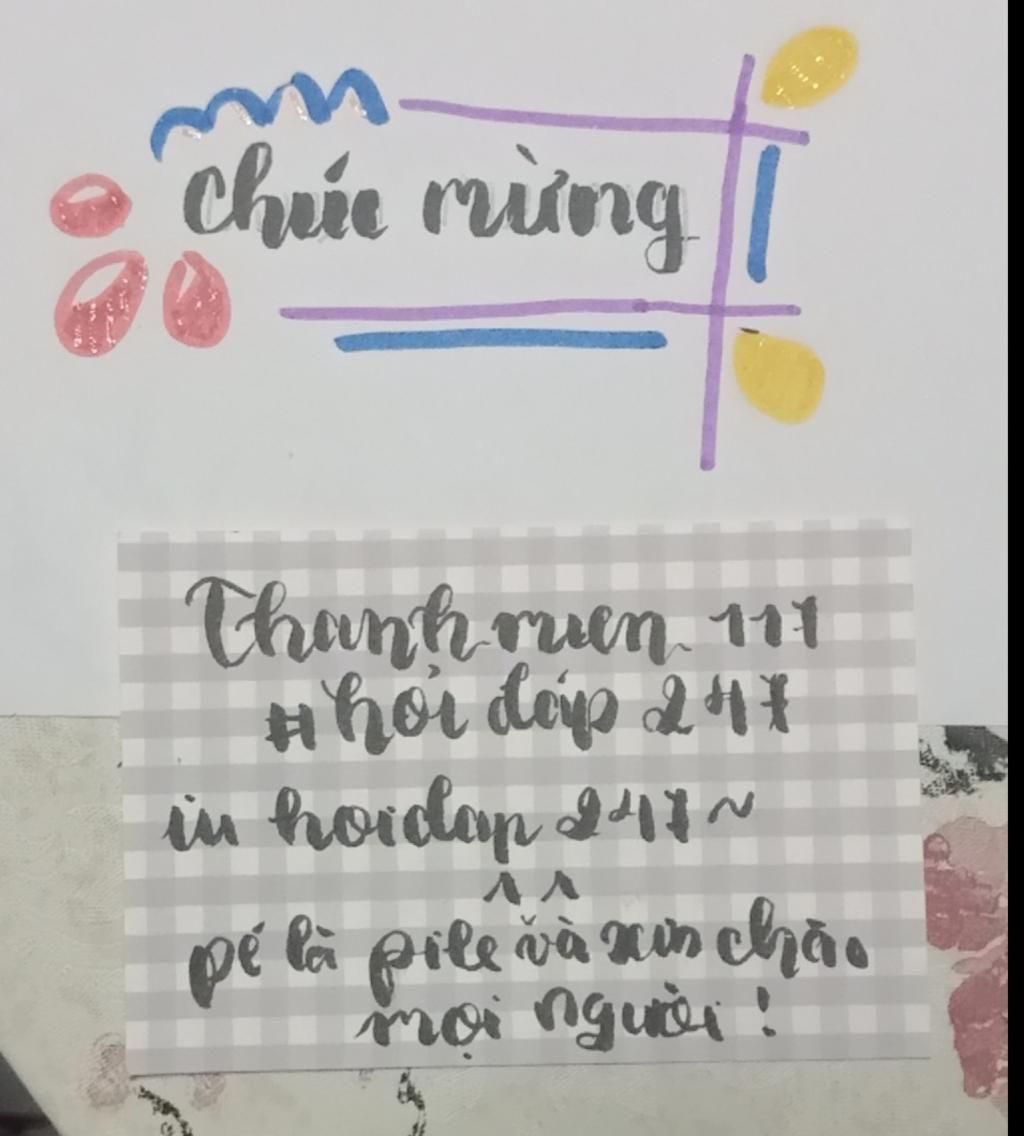 chúc mừng
Thanh mien 117
#hỏi đáp 247
in hoidap 247~
^ ^
pé là pile và xin chào
mọi người!